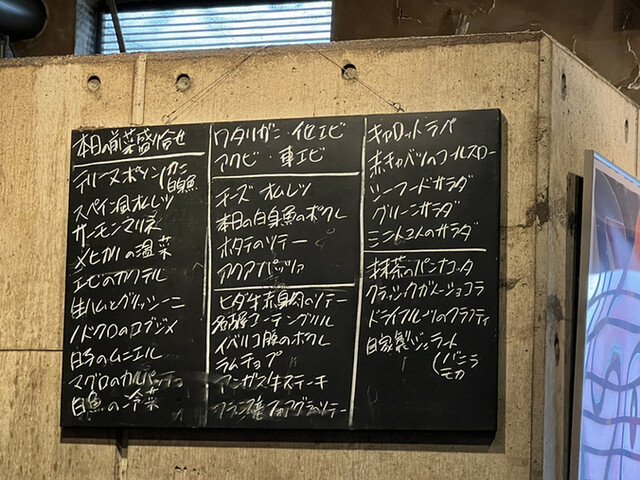 本日の前菜盛り合せ
テリーヌ ポワソン(カニ 白身魚
スペイン風オムレツ
サーモンマリネ
メヒカリの温菜
エビのカクテル
生ハムとグリッシーニ
ノドクロのコブジメ
白子のムニエル
マグロのカルパッチョ
白魚の冷菜
ワタリガニ・伊セエビ
アワビ・車エビ
チーズ オムレツ
本日の白身魚のポワレ
ホタテのソテー
アクアパッツァ
ヒダ牛赤身肉のソテー
名古屋コーチングリル
イベリコ豚のポワレ
ラムチョップ
アンガス牛ステーキ
フランス産フォアグラのソテー
キャロットラペ
赤キャベツのコールスロー
シーフードサラダ
グリーンサラダ
ミニトマトのサラダ
抹茶のパンナコッタ
クラシックガトーショコラ
ドライフルーツのクラフティ
自家製ジェラート
(バニラ
モカ